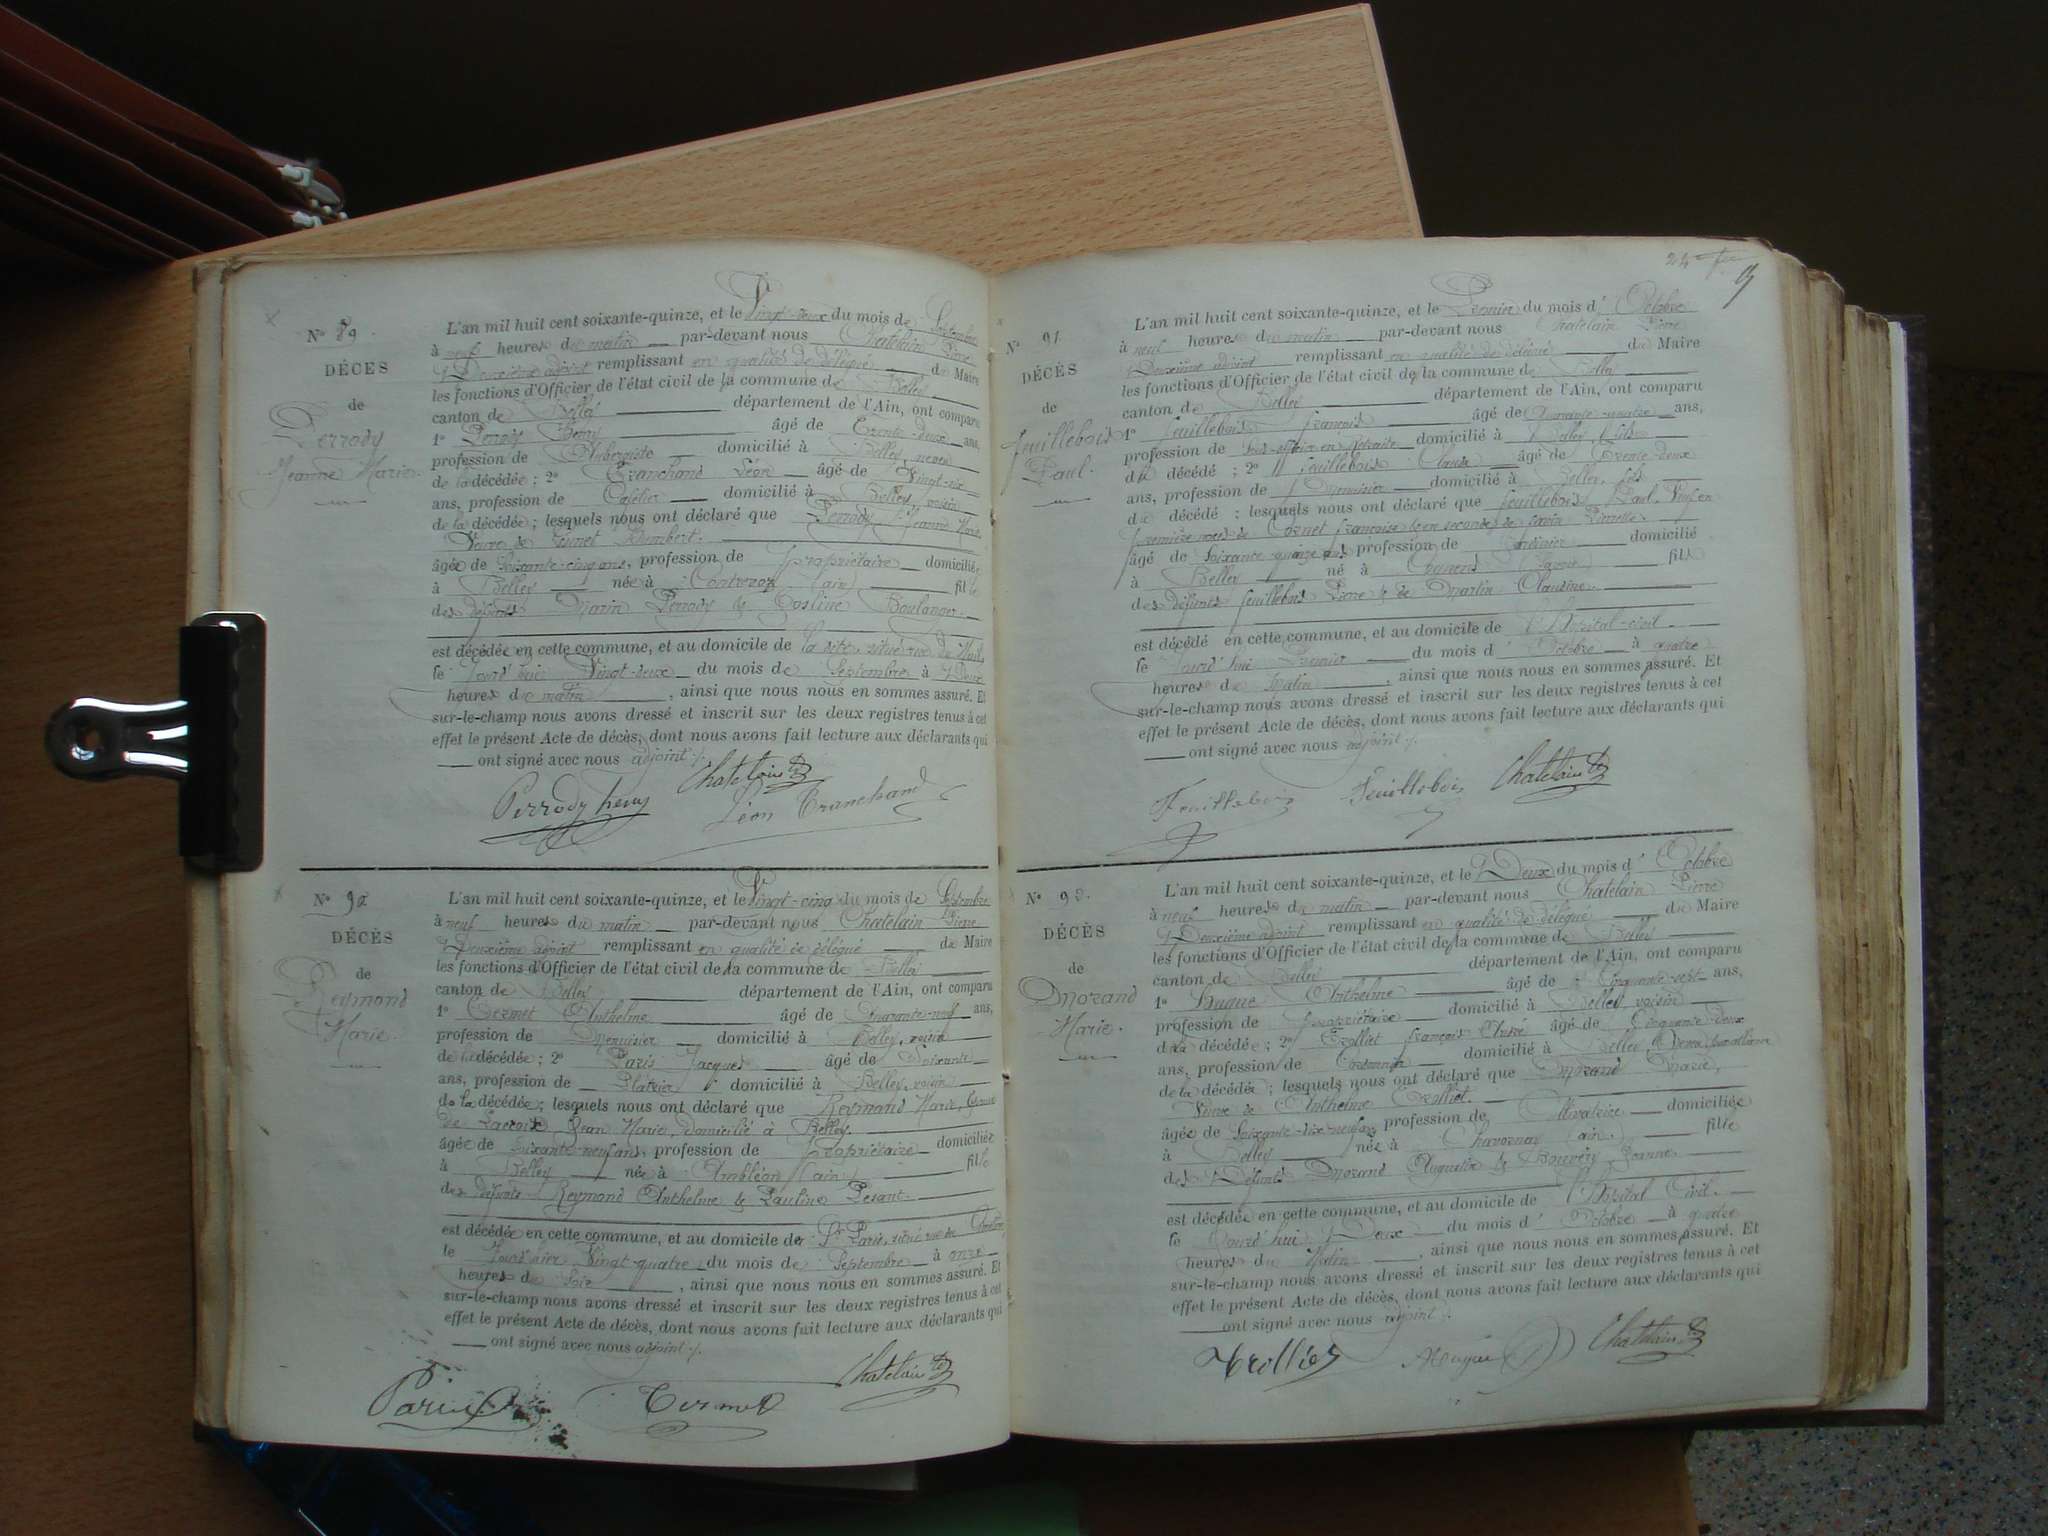 N° 89
DÉCÈS
de
Perrody
Jeanne Marie.
L'an mil huit cent soixante-quinze, et le Vingt-deux du mois de Septembre
à neuf heures du matin par-devant nous Chatelain Pierre
Deuxième adjoint remplissant en qualité de délégué du Maire
les fonctions d'Officier de l'état civil de la commune de Belley
canton de Belley département de l'Ain, ont comparu
1° Perrody Henry âgé de Trente-deux ans,
profession de Aubergiste domicilié à Belley, neveu
de la décédée ; 2° Tranchand Léon âgé de Vingt-six
ans, profession de Cafetier domicilié à Belley, voisin
de la décédée ; lesquels nous ont déclaré que Perrody Jeanne Marie
Veuve de Humbert.
âgée de Soixante-cinq ans, profession de propriétaire domiciliée
à Belley née à Contrevoz (ain) fille
des défunts Marin Perrody & Josline Boulanger.
est décédée en cette commune, et au domicile de
le Jourd'hui Vingt-deux du mois de Septembre à Deux
heures du matin, ainsi que nous nous en sommes assuré. Et
sur-le-champ nous avons dressé et inscrit sur les deux registres tenus à cet
effet le présent Acte de décès, dont nous avons fait lecture aux déclarants qui
ont signé avec nous adjoint ./.
Perrody henry Chatelain Léon Tranchand
N° 90
DÉCÈS
de
Reymond
Marie.
L'an mil huit cent soixante-quinze, et le Vingt-cinq du mois de Septembre
à neuf heures du matin par-devant nous Chatelain Pierre
Deuxième adjoint remplissant en qualité de délégué du Maire
les fonctions d'Officier de l'état civil de la commune de Belley
canton de Belley département de l'Ain, ont comparu
1° Termet Anthelme âgé de Quarante-neuf ans,
profession de Menuisier domicilié à Belley, voisin
de la décédée ; 2° Paris Jacques âgé de Soixante
ans, profession de Platrier domicilié à Belley, voisin
de la décédée ; lesquels nous ont déclaré que Reymond Marie,
de Lacroix Jean Marie, domicilié à Belley.
âgée de Soixante-neuf ans, profession de propriétaire domiciliée
à Belley née à Ambléon (ain) fille
des défunts Reymond Anthelme & Pauline Pesant
est décédée en cette commune, et au domicile de Sr Paris, situé rue
le Jourd'hier Vingt-quatre du mois de Septembre à onze
heures du Soir, ainsi que nous nous en sommes assuré. Et
sur-le-champ nous avons dressé et inscrit sur les deux registres tenus à cet
effet le présent Acte de décès, dont nous avons fait lecture aux déclarants qui
ont signé avec nous adjoint ./.
Paris Termet Chatelain
24
N° 91
DÉCÈS
de
Feuillebois
Paul.
L'an mil huit cent soixante-quinze, et le Premier du mois d'Octobre
à neuf heures du matin par-devant nous Chatelain Pierre
Deuxième adjoint remplissant en qualité de délégué du Maire
les fonctions d'Officier de l'état civil de la commune de Belley
canton de Belley département de l'Ain, ont comparu
1° Feuillebois François âgé de Quarante-quatre ans,
profession de Sous-officier en Retraite domicilié à Belley, fils
du décédé ; 2° Feuillebois Claude âgé de Trente-deux
ans, profession de Menuisier domicilié à Belley, fils
du décédé ; lesquels nous ont déclaré que Feuillebois Paul, Veuf en
première noces de Cornet Françoise & en secondes de
âgé de Soixante-quinze ans profession de domicilié
à Belley né à (Savoie) fils
des défunts Feuillebois Pierre & de Martin Claudine.
est décédé en cette commune, et au domicile de l'Hôpital-civil.
le Jourd'hui Premier du mois d'Octobre à quatre
heures du Matin, ainsi que nous nous en sommes assuré. Et
sur-le-champ nous avons dressé et inscrit sur les deux registres tenus à cet
effet le présent Acte de décès, dont nous avons fait lecture aux déclarants qui
ont signé avec nous adjoint ./.
Feuillebois Feuillebois Chatelain
N° 92.
DÉCÈS
de
Morand
Marie.
L'an mil huit cent soixante-quinze, et le Deux du mois d'Octobre
à neuf heures du matin par-devant nous Chatelain Pierre
Deuxième adjoint remplissant en qualité de délégué du Maire
les fonctions d'Officier de l'état civil de la commune de Belley
canton de Belley département de l'Ain, ont comparu
1° Anthelme âgé de Cinquante-sept ans,
profession de propriétaire domicilié à Belley, voisin
de la décédée ; 2° Trolliet François André âgé de Cinquante-deux
ans, profession de Cordonnier domicilié à Belley,
de la décédée ; lesquels nous ont déclaré que Morand Marie,
Veuve de Anthelme Trolliet.
âgée de Soixante-dix-neuf ans, profession de Cultivatrice domiciliée
à Belley née à Chavornay (ain) fille
des Défunts Morand Augustin & Jeanne
est décédée en cette commune, et au domicile de l'Hôpital Civil.
le Jourd'hui Deux du mois d'Octobre à quatre
heures du Matin, ainsi que nous nous en sommes assuré. Et
sur-le-champ nous avons dressé et inscrit sur les deux registres tenus à cet
effet le présent Acte de décès, dont nous avons fait lecture aux déclarants qui
ont signé avec nous adjoint ./.
Trolliet Chatelain